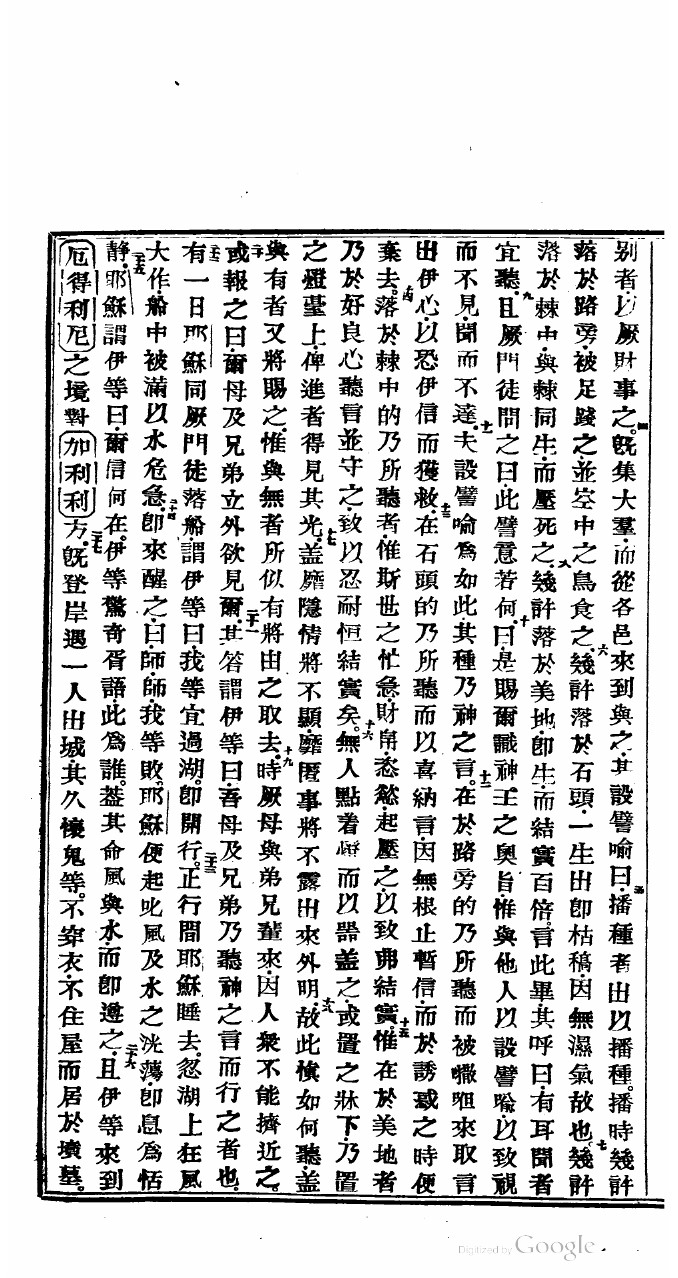 别者以厥財事之。既集大羣、而從各邑來到與之、其設譬喻曰、播種者出以播種。播時幾許
落於路旁、被足踐之、並空中之鳥食之。幾許落於石頭、一生出即枯稿、因無濕氣故也。幾許
落於棘中、與棘同生、而壓死之。幾許落於美地、即生、而結實百倍。言此畢、其呼曰、有耳聞者
宜聽。且厥門徒問之曰、此譬意若何。曰、是賜爾識神王之奧旨、惟與他人以設譬喻、以致視
而不見、聞而不達。夫設譬喻為如此、其種乃神之言。在於路旁的、乃所聽而被嚈呾來取言
出伊心、以恐伊信而獲救。在石頭的、乃所聽而以喜納言、因無根止暫信、而於誘惑之時便
棄去。落於棘中的、乃所聽者、惟斯世之忙急財帛、恣慾、起壓之、以致弗結實。惟在於美地者
乃於好良心聽言並守之、致以忍耐恒結實矣。無人點着燈而以器盖之、或置之牀下、乃置
之燈臺上、俾進者得見其光。盖靡隱情將不顯、靡匿事將不露出來外明。故此慎如何聽、盖
與有者又將賜之、惟與無者所似有將由之取去。時厥母與弟兄輩來、因人衆不能擠近之。
或報之曰、爾母及兄弟立外欲見爾。其答謂伊等曰、吾母及兄弟、乃聽神之言而行之者也。
有一日耶穌同厥門徒落船、謂伊等曰、我等宜過湖。即開行。正行間耶穌睡去。忽湖上狂風
大作、船中被滿以水危急。即來醒之曰、師師我等敗。耶穌便起叱風及水之洸蕩、即息為恬
靜。耶穌謂伊等曰、爾信何在。伊等驚奇胥語、此為誰。葢其命風與水、而即遵之。且伊等來到
厄得利尼之境對加利利方。既登岸遇一人出城、其久懷鬼等。不穿衣、不住屋而居於墳墓。
Digitized by Google